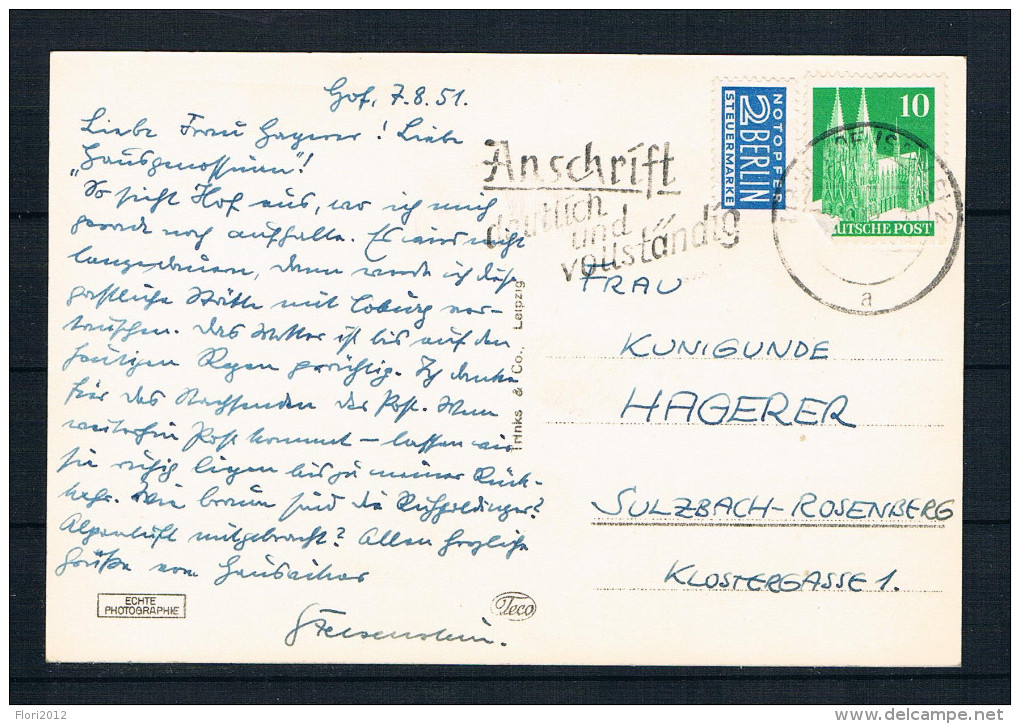 Hof, 7.8.51.
Liebe Frau Hagerer! Liebe
"Hausgenossinnen"!
So sieht Hof aus, wo ich mich
gerade noch aufhalte. Es wird nicht
lange dauern, dann werde ich diese
gastliche Stätte mit Coburg ver-
tauschen. Das Wetter ist bis auf den
heutigen Regen prächtig. Ich danke
für das Nachsenden der Post. Wenn
weiterhin Post kommt – lassen Sie
sie ruhig liegen bis zu meiner Rück-
kehr. Wie braun sind die Ruhpoldinger?
Alpenluft mitgebracht? Allen herzliche
Grüße vom
ECHTE
PHOTOGRAPHIE
Trinks & Co., Leipzig
Teco
Anschrift
deutlich
und
vollständig
NOTOPFER
2 BERLIN
STEUERMARKE
10
DEUTSCHE POST
a
FRAU
KUNIGUNDE
HAGERER
SULZBACH-ROSENBERG
KLOSTERGASSE 1.
Flori2012
http://www.delcampe.net